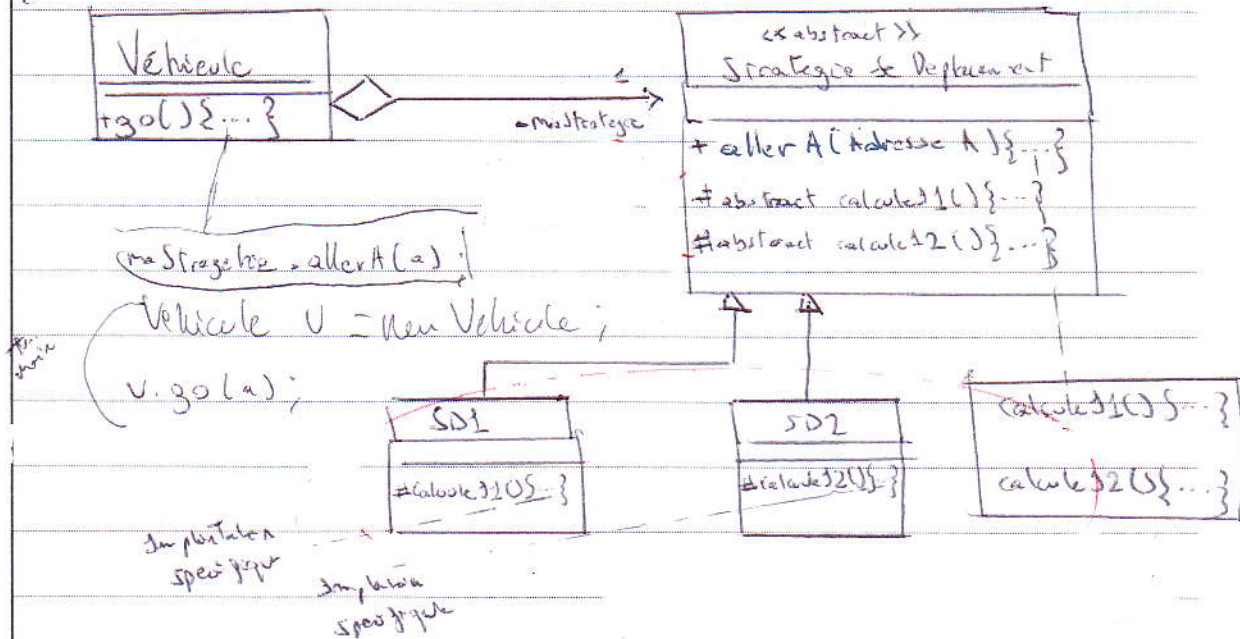 Véhicule
+go(){...}
<<abstract>>
Strategie de Deplacement
1
-maStrategie
+ allerA(Adresse A){...}
#abstract calcule11(){...}
#abstract calcule12(){...}
maStragetie.allerA(a);
Vehicule v = new Vehicule;
v.go(a);
SD1
SD2
#calcule12(){...}
calcule11(){...}
calcule12(){...}
specifique
specifique